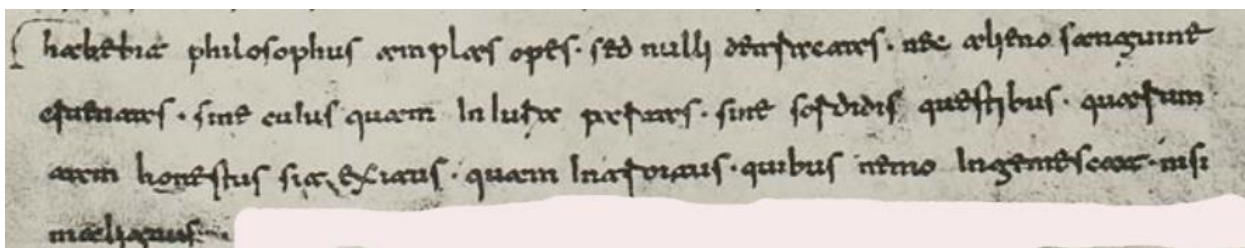 habebit philosophus amplas opes· sed nulli detractas· nec alieno sanguine
cruentas· sine cuius quam iniuria partas· sine sordidis questibus· quarum
tam honestus sit exitus· quam introitus· quibus nemo ingemescat· nisi
malignus·